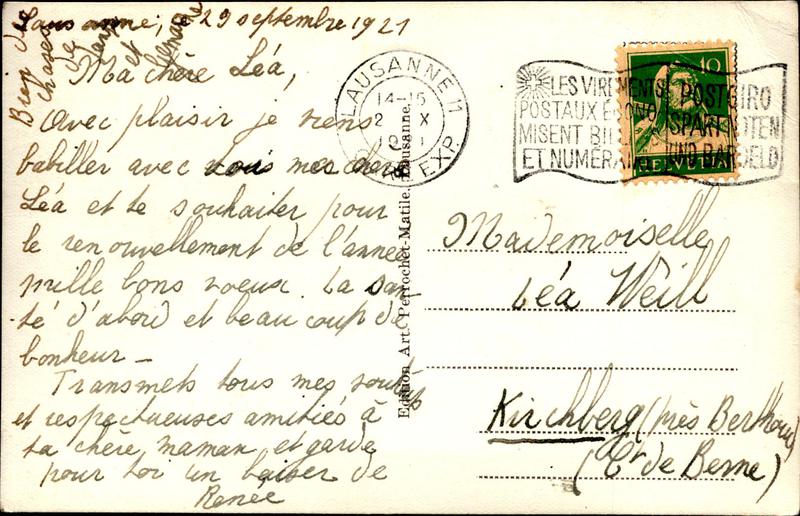 Lausanne, 29 septembre 1921
Ma chère Léa,
Avec plaisir je viens
babiller avec vous mes chers
Léa et te souhaiter pour
le renouvellement de l'année
mille bons voeux. La san-
té d'abord et beaucoup de
bonheur –
Transmets tous mes souhaits
et respectueuses amitiés à
ta chère maman et garde
pour toi un baiser de
Renée
Bien de
choses
de
et
Edition Art. Perrochet-Matile, Lausanne.
LAUSANNE 11
14-15
2 X
EXP.
LES VIREMENTS
POSTAUX ÉCONO
MISENT BIL
ET NUMÉRAI
POSTGIRO
SPART NOTEN
UND BARGELD
10
HELVETIA
Mademoiselle
Léa Weill
Kirchberg (près Berthou)
(Ct de Berne)